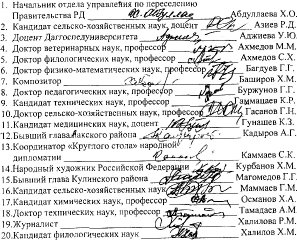 1. Начальник отдела управления по переселению
Правительства РД Абдуллаева Х.О.
2. Кандидат сельско-хозяйственных наук, доцент Азиев Р.Д.
3. Доцент Даггоспедуниверситета Аджиева У.Ю.
4. Доктор ветеринарных наук, профессор Ахмедов М.М.
5. Доктор филологических наук, профессор Ахмедов С.Х.
6. Доктор физико-математических наук, профессор Багдуев Г.Г.
7. Композитор Баширов Х.М.
8. Доктор педагогических наук, профессор Буржунов Г.Г.
9. Кандидат технических наук, профессор Гаммацаев К.Р.
10. Доктор сельско-хозяйственных наук, профессор Гасанов Г.Н.
11. Кандидат медицинских наук, доцент Гунашев К.З.
12. Бывший глава Лакского района Кадыров А.Г.
13. Координатор «Круглого стола» народной
дипломатии Каммаев С.К.
14. Народный художник Российской Федерации Курбанов Х.М.
15. Бывший глава Кулинского района Магомедов Г.Г.
16. Кандидат сельско-хозяйственных наук Маммаев Г.М.
17. Кандидат химических наук, профессор Османов Х.А.
18. Доктор технических наук, профессор Тамадаев М.Г.
19. Журналист Халилова Р.М.
20. Кандидат филологических наук Халилов Х.М.